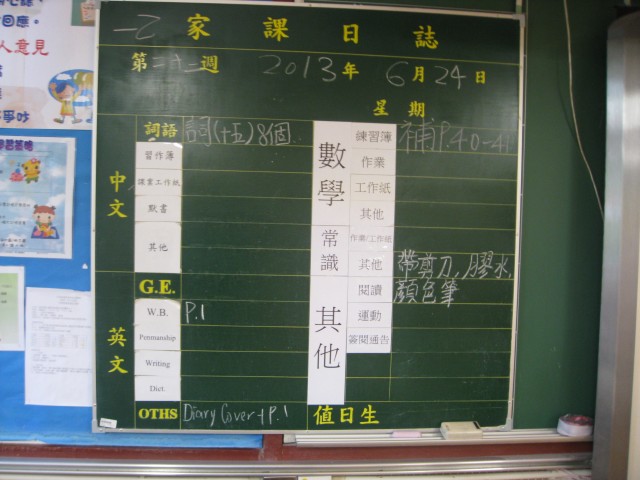 一乙 家課日誌
第二十二週 2013年 6月24日
星期
中文
詞語 詞(十五)8個
習作簿
讀書工作紙
默書
其他
英文
G.E.
W.B. P.1
Penmanship
Writing
Dict.
OTHS Diary Cover + P.1
數學
練習簿 補P.40-41
作業
工作紙
其他
常識
作業/工作紙
其他 帶剪刀,膠水,
顏色筆
其他
閱讀
運動
簽閱通告
值日生
回應。
人意見